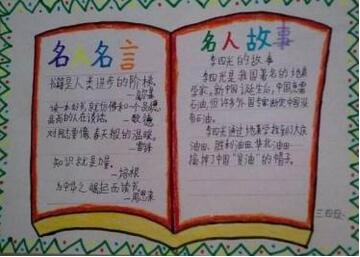 名人名言
书籍是人类进步的阶梯。
—高尔基
读一本好书,就仿佛和一个品德
高尚的人在谈话。
—歌德
对同志要像春天般的温暖。
—雷锋
知识就是力量。
—培根
为中华之崛起而读书。
—周恩来
名人故事
李四光的故事
李四光是我国著名的地质
学家。新中国诞生后,中国急需
石油,但许多外国专家断定中国没
有石油。
李四光通过地质学找到了大庆
油田、胜利油田、华北油田…
摘掉了中国“贫油”的帽子。